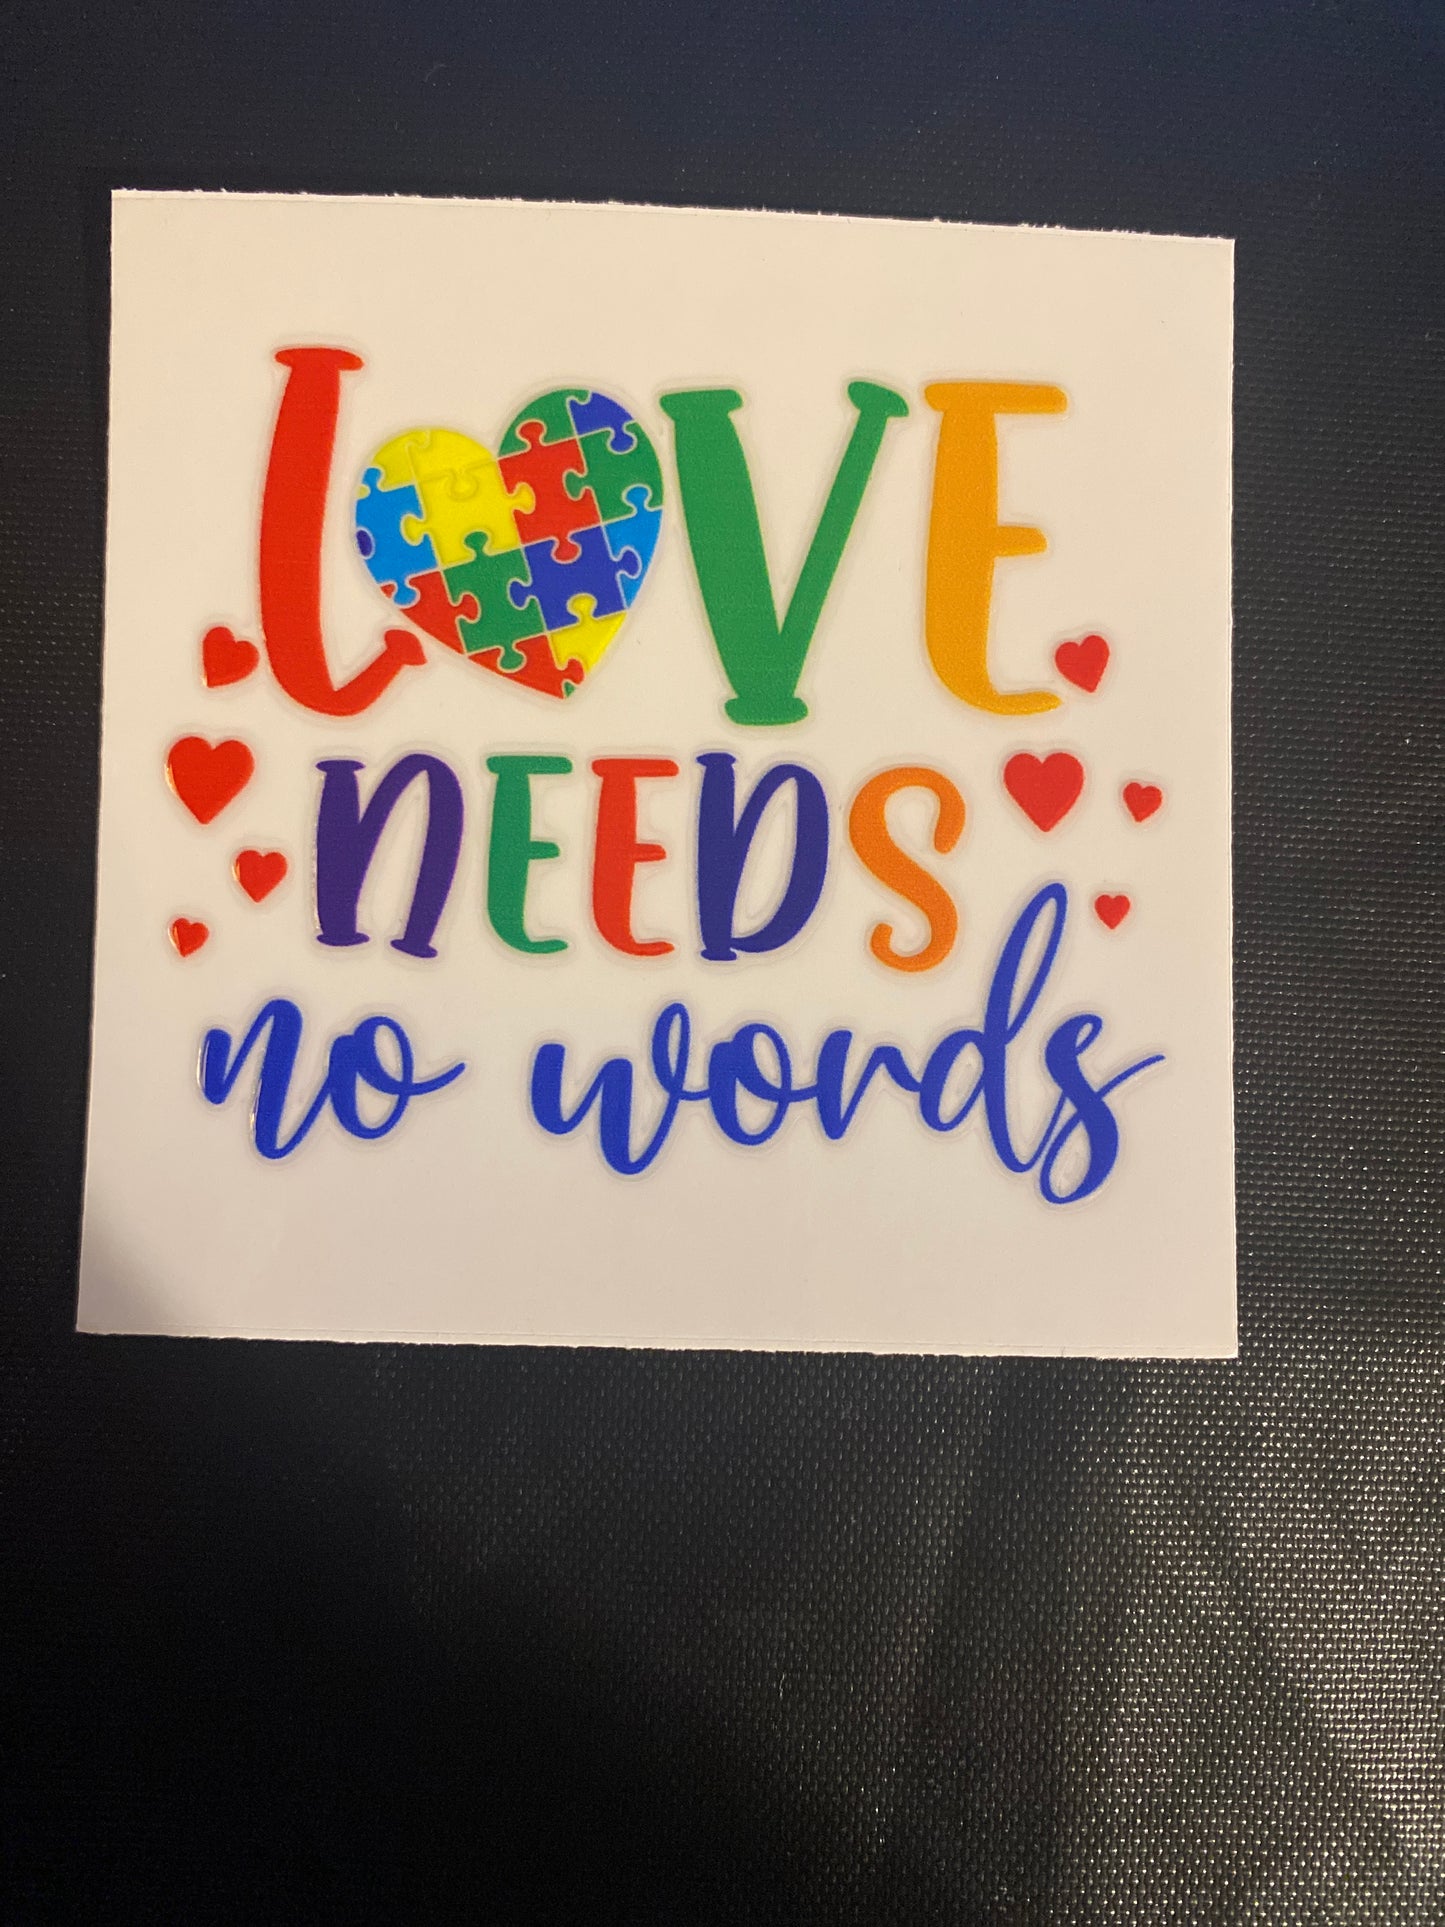 LOVE
NEEDS
no words